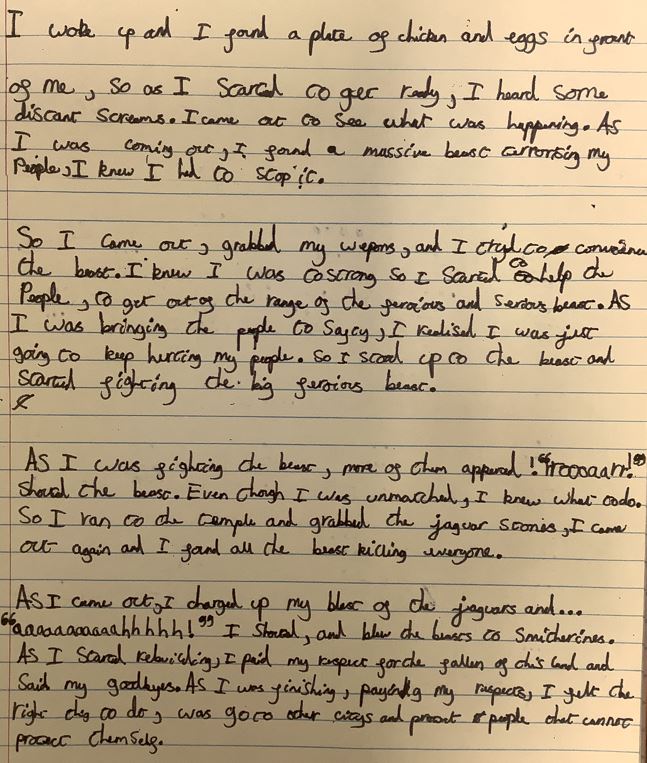 I woke up and I found a plate of chicken and eggs in front
of me, so as I Scarced to get ready, I heard some
distant screams. I came out to see what was happening. As
I was coming out, I found a massive beast terrorising my
People, I knew I had to stop it.
So I came out, grabbed my wepons, and I tryed to
the beast. I knew I was to strong so I Started to help the
People, to get out of the range of the ferocious and Serious beast. As
I was bringing the people to Sayty, I Realised I was just
going to keep hurting my people. So I stood up to the beast and
Started fighting the big feroious beast.
As I was fighting the beast, more of them appered! "rroooaarr!"
Shouted the beast. Even though I was unmatched, I knew what todo.
So I ran to the temple and grabbed the jaguar stones, I came
out again and I found all the beast killing everyone.
As I came out, I charged up my blast of the jaguars and...
"aaaaaaaaaaahhhhhh!" I Shouted, and blew the beasts to Smitherines.
As I Started Rebuilding, I paid my respect for the fallen of this land and
Said my goodbyes. As I was finishing, paying my respects, I felt the
right thing to do, was goto other citys and protect people that cannot
protect themselfs.